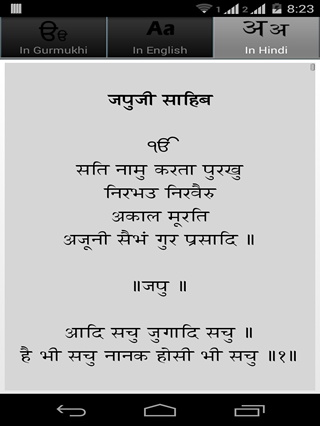 1 2 8:23
ੳੳ Aa अ अ
In Gurmukhi In English In Hindi
जपुजी साहिब
ੴ
सति नामु करता पुरखु
निरभउ निरवैरु
अकाल मूरति
अजूनी सैभं गुर प्रसादि ॥
॥जपु ॥
आदि सचु जुगादि सचु ॥
है भी सचु नानक होसी भी सचु ॥१॥